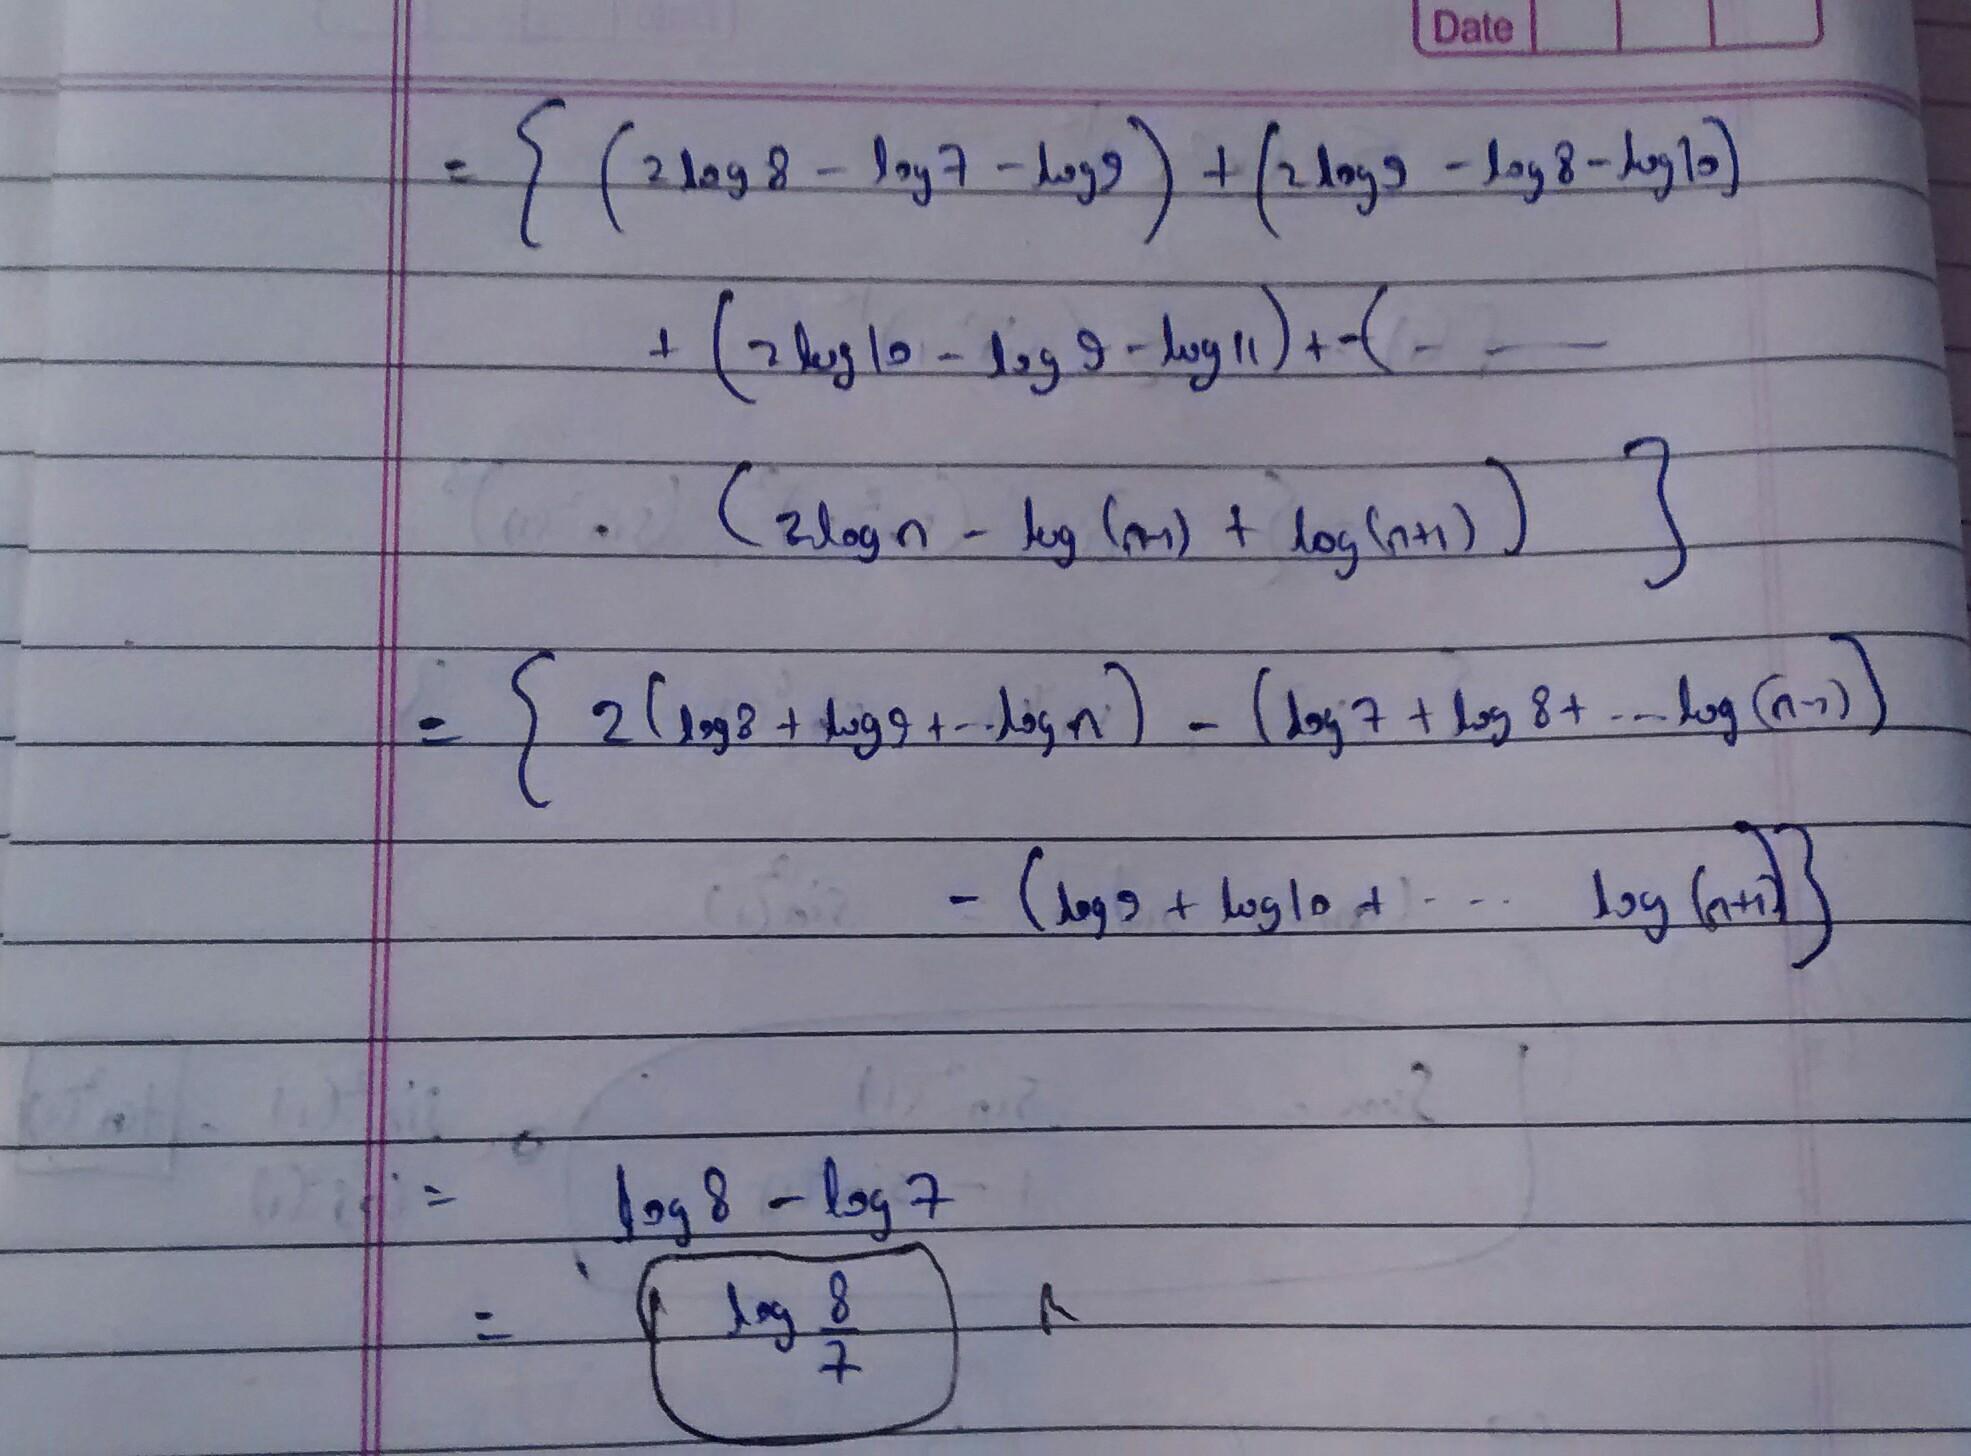 Date
= { (2 log 8 - log 7 - log 9) + (2 log 9 - log 8 - log 10)
+ (2 log 10 - log 9 - log 11) + - ( - - —
. (2 log n - log (n-1) + log (n+1) ) }
= { 2 (log 8 + log 9 + -- log n) - (log 7 + log 8 + ... log (n-1))
- (log 9 + log 10 + - - .. log (n+1)) }
= log 8 - log 7
= log 8/7